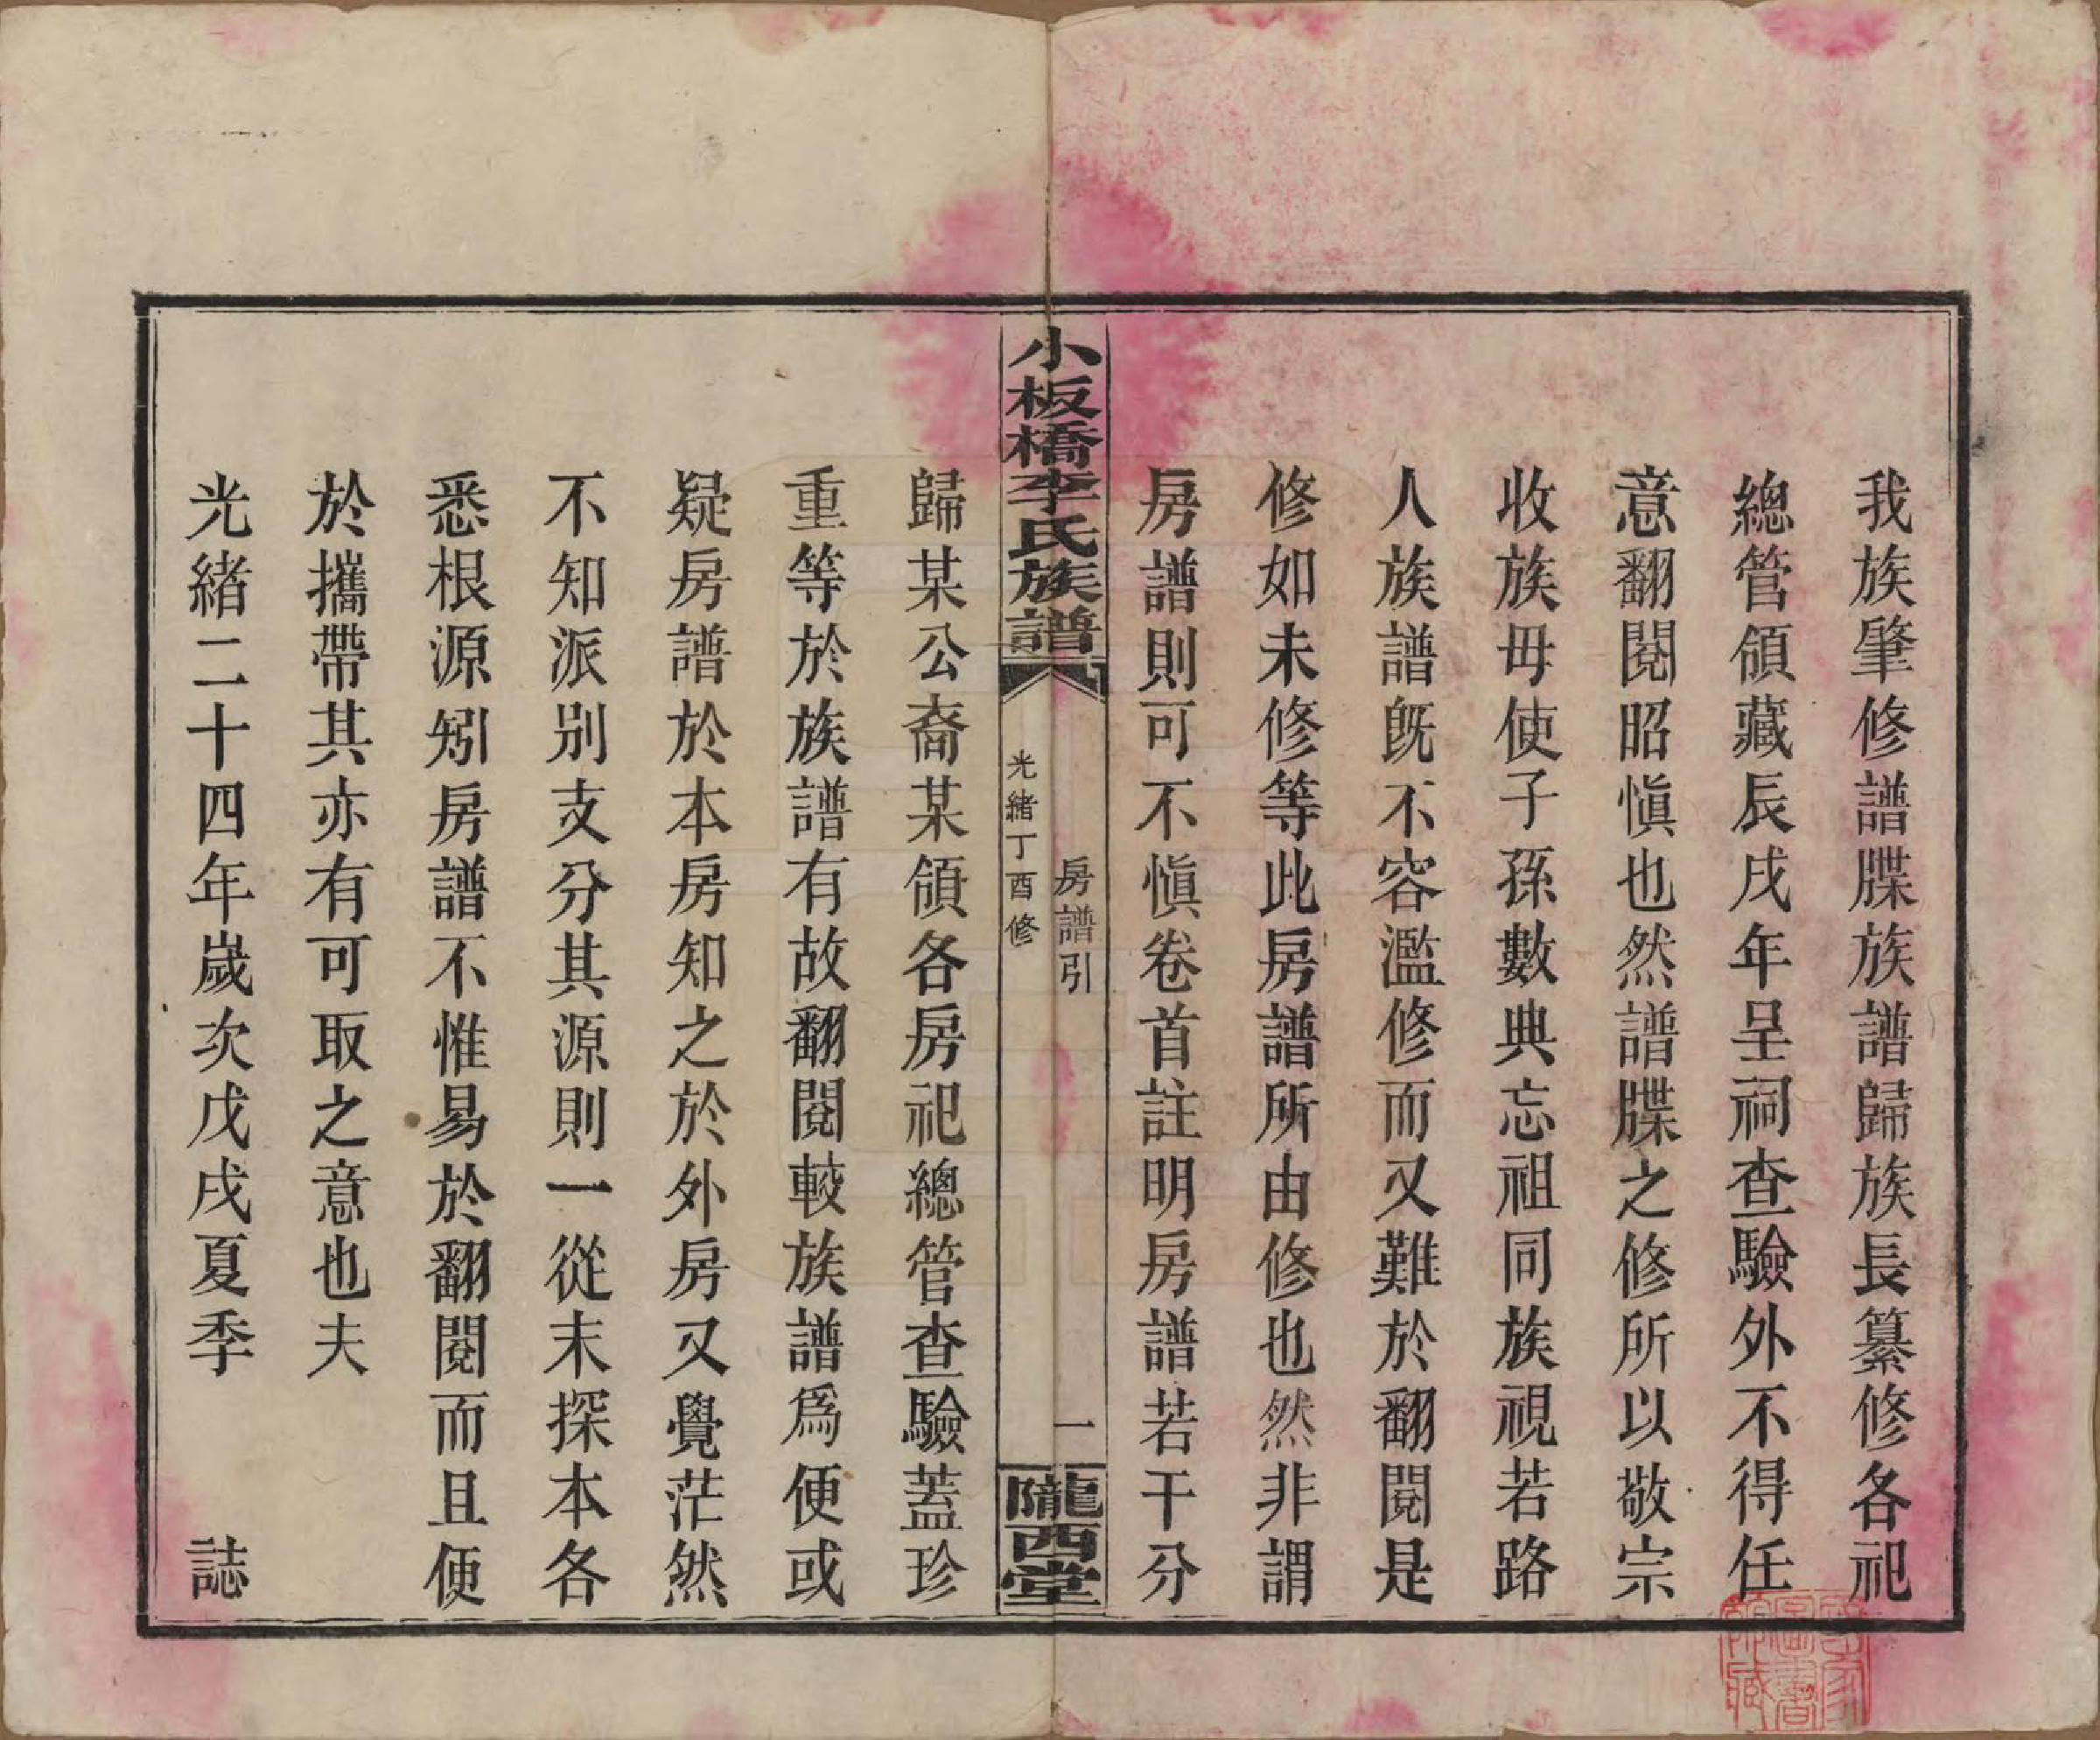 我族肇修譜牒族譜歸族長纂修各祀
總管領藏辰戌年呈祠查驗外不得任
意翻閱昭慎也然譜牒之修所以敬宗
收族毋使子孫數典忘祖同族視若路
人族譜旣不容濫修而又難於翻閱是
修如未修等此房譜所由修也然非謂
房譜則可不慎卷首註明房譜若干分
小板橋李氏族譜
房譜引
光緒丁酉修
一
隴西堂
歸某公裔某領各房祀總管查驗蓋珍
重等於族譜有故翻閱較族譜爲便或
疑房譜於本房知之於外房又覺茫然
不知派別支分其源則一從末探本各
悉根源矧房譜不惟易於翻閱而且便
於攜帶其亦有可取之意也夫
光緒二十四年歲次戊戌夏季 誌